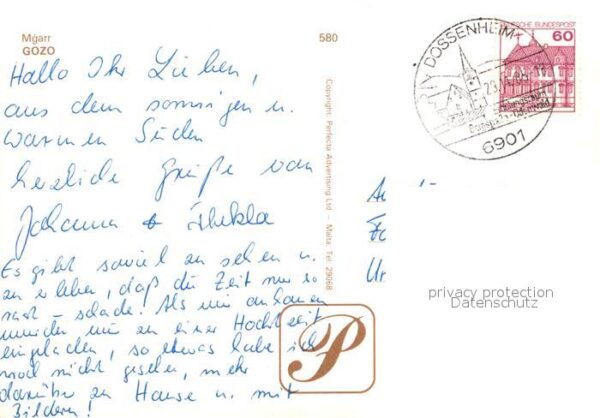 Mġarr
GOZO
580
Hallo Ihr Lieben,
aus dem sonnigen u.
warmen Süden
herzliche Grüße von
Johanna & Thekla
Es gibt soviel zu sehen u.
zu erleben, daß die Zeit nur so
rast - schade. Als wir ankamen
wurden wir zu einer Hochzeit
eingeladen, so etwas habe ich
noch nicht gesehen, mehr
darüber zu Hause u. mit
Bildern!
Copyright: Perfecta Advertising Ltd — Malta: Tel: 29068
P
DEUTSCHE BUNDESPOST
60
DOSSENHEIM
6901
privacy protection
Datenschutz